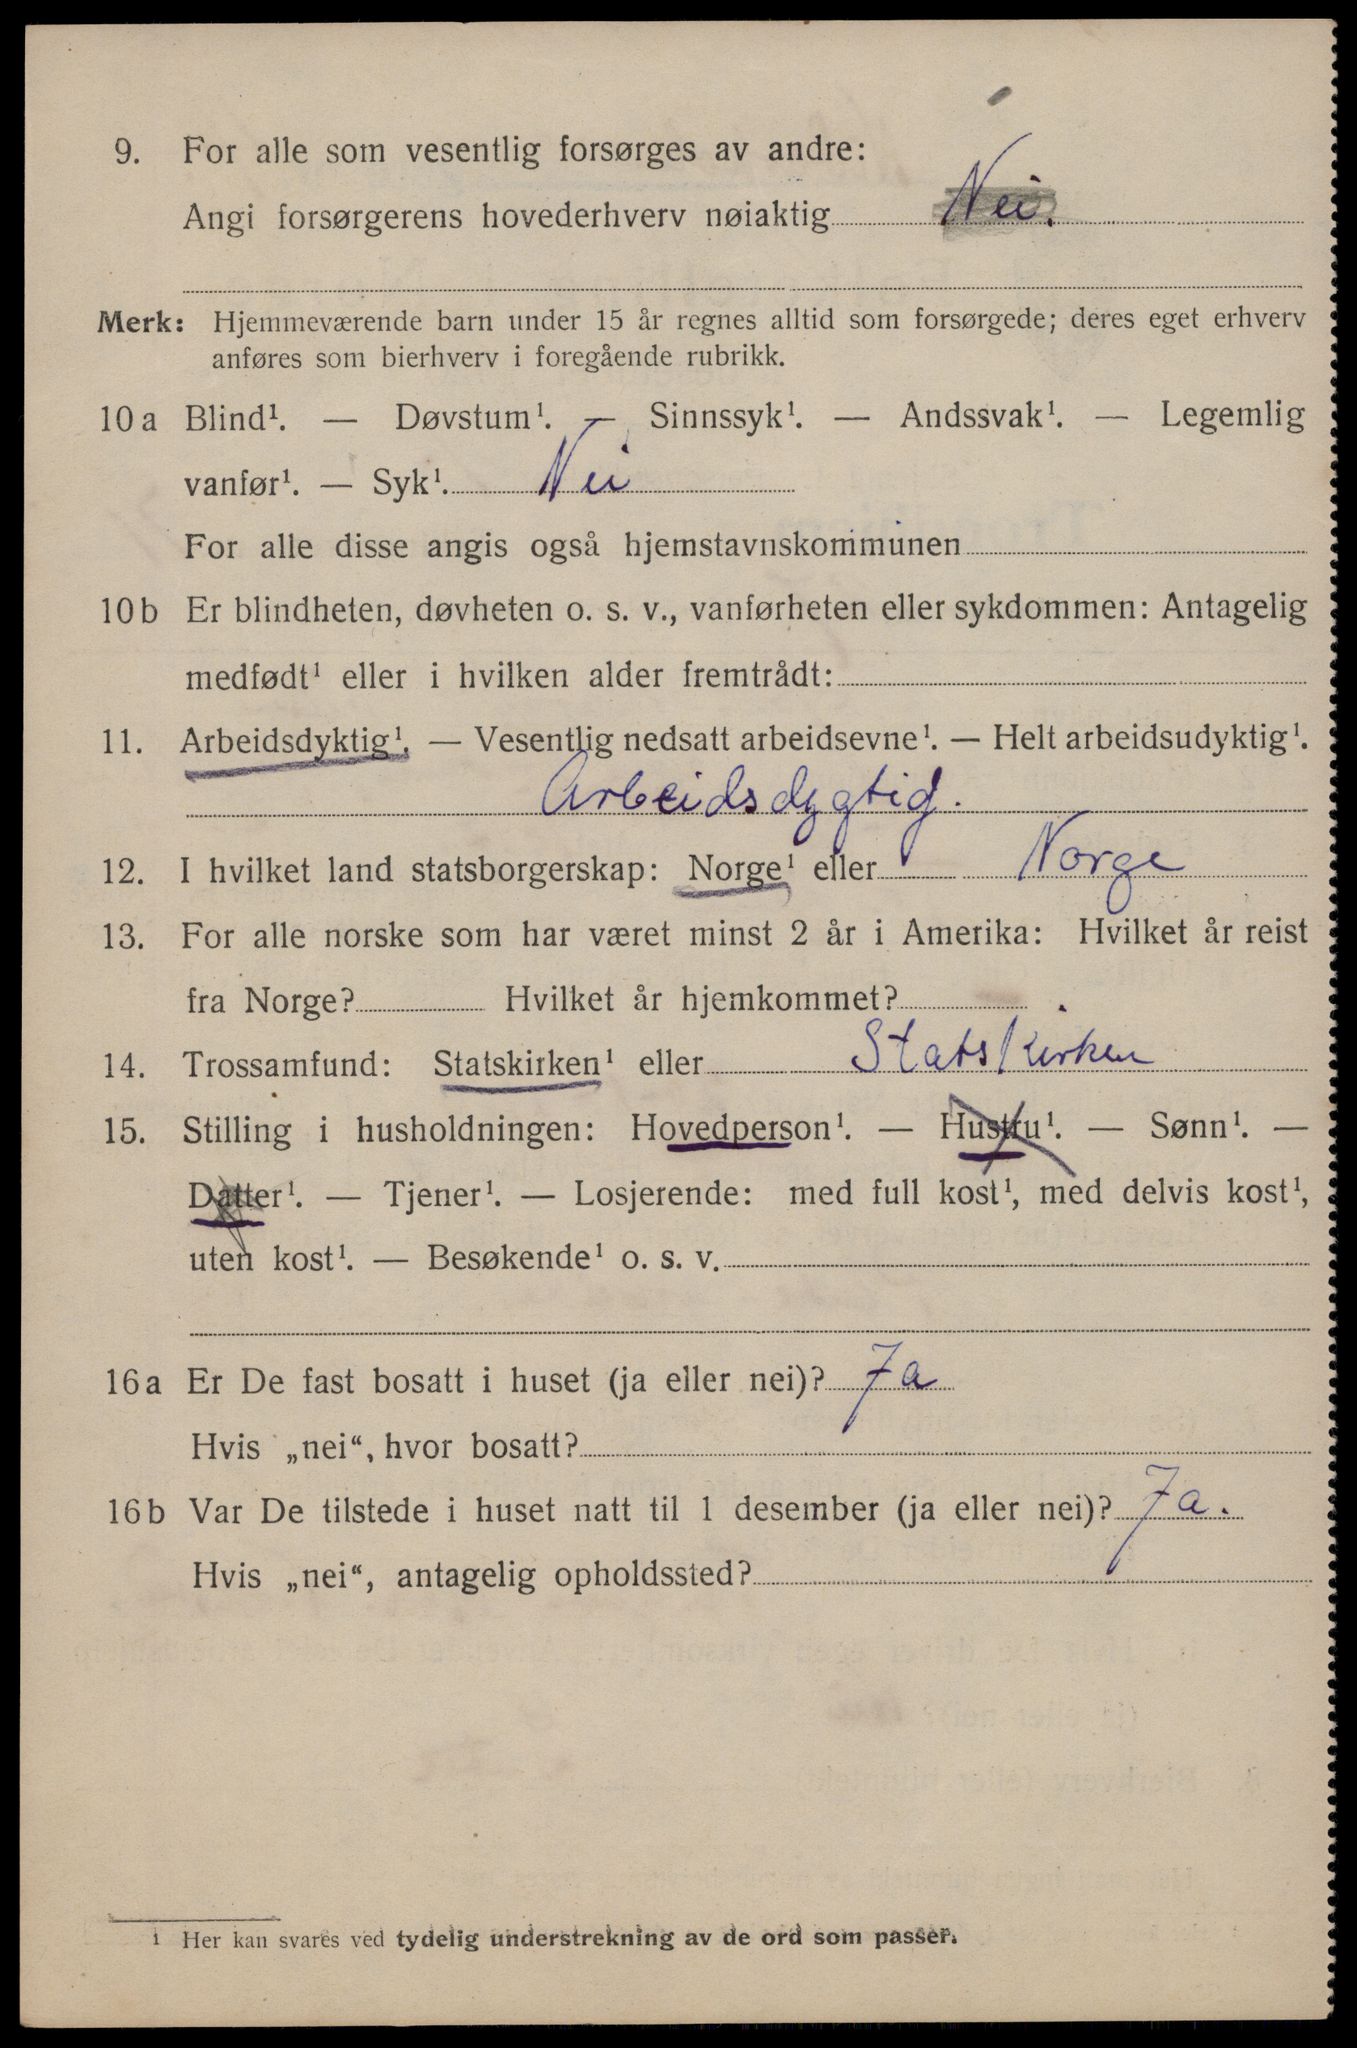 9. For alle som vesentlig forsørges av andre:
Angi forsørgerens hovederhverv nøiaktig Nei.
Merk: Hjemmeværende barn under 15 år regnes alltid som forsørgede; deres eget erhverv
anføres som bierhverv i foregående rubrikk.
10 a Blind¹. — Døvstum¹. — Sinnssyk¹. — Andssvak¹. — Legemlig
vanfør¹. — Syk¹. Nei
For alle disse angis også hjemstavnskommunen
10 b Er blindheten, døvheten o. s. v., vanførheten eller sykdommen: Antagelig
medfødt¹ eller i hvilken alder fremtrådt:
11. Arbeidsdyktig¹. — Vesentlig nedsatt arbeidsevne¹. — Helt arbeidsudyktig¹.
Arbeidsdygtig.
12. I hvilket land statsborgerskap: Norge¹ eller Norge
13. For alle norske som har været minst 2 år i Amerika: Hvilket år reist
fra Norge? Hvilket år hjemkommet?
14. Trossamfund: Statskirken¹ eller Statskirken
15. Stilling i husholdningen: Hovedperson¹. — Hustru¹. — Sønn¹. —
Datter¹. — Tjener¹. — Losjerende: med full kost¹, med delvis kost¹,
uten kost¹. — Besøkende¹ o. s. v.
16 a Er De fast bosatt i huset (ja eller nei)? Ja
Hvis „nei“, hvor bosatt?
16 b Var De tilstede i huset natt til 1 desember (ja eller nei)? Ja.
Hvis „nei“, antagelig opholdssted?
1 Her kan svares ved tydelig understrekning av de ord som passer.